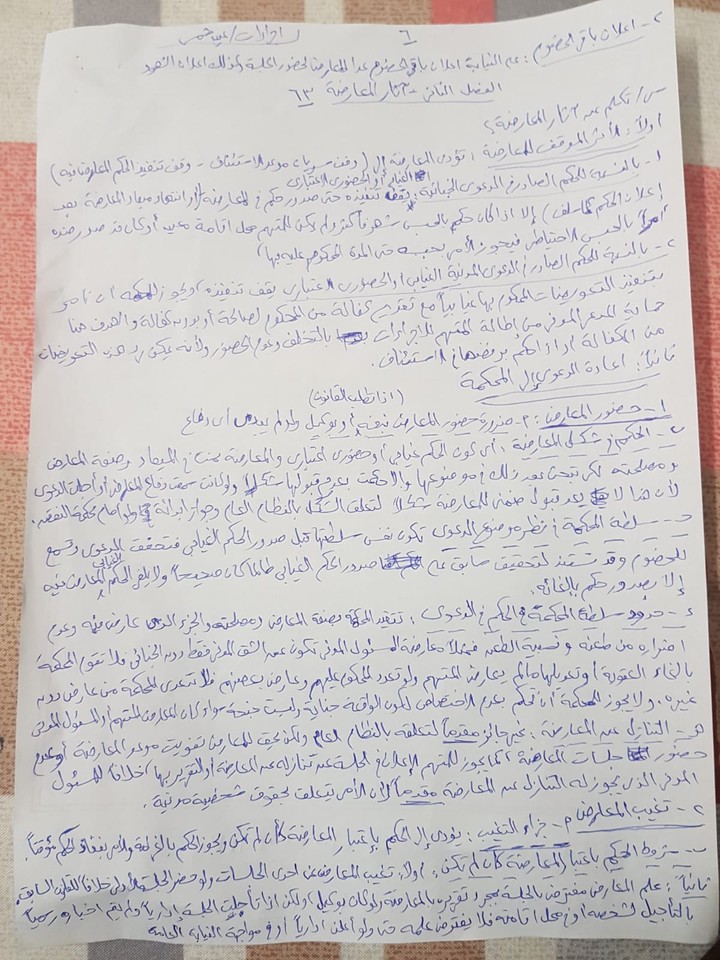 ٦ اجراءات / عين شمس
٢- اعلان باقى الخصوم : على النيابة اعلان باقى الخصوم عدا المعارض لحضور الجلسة وكذلك اعلان الشهود
الفصل الثانى - آثار المعارضة ٦٣
س/ تكلم عن آثار المعارضة ؟
أولاً : الأثر الموقف للمعارضة : تؤدى المعارضة إلى ( وقف سريان موعد الاستئناف - وقف تنفيذ الحكم المعارض فيه )
١- بالنسبة للحكم الصادر فى الدعوى الجنائية الغيابى أو الحضورى الاعتبارى : يقف تنفيذه حتى صدور حكم فى المعارضة أو انتهاء ميعاد المعارضة بعد
إعلان الحكم ( كما سلف ) إلا اذا كان حكم بالحبس شهر فأكثر ولم يكن للمتهم محل اقامة معين أو كان قد صدر ضده
أمراً بالحبس الاحتياطى فيجوز الأمر بحبسه حتى المدة المحكوم عليه بها )
٢- بالنسبة للحكم الصادر فى الدعوى المدنية الغيابى أو الحضورى الاعتبارى يقف تنفيذه ويجوز للمحكمة ان تأمر
بتنفيذ التعويضات المحكوم بها غيابياً مع تقديم كفالة من المحكوم لصالحه أو بدون كفالة والهدف هنا
حماية المدعى المدنى من اطالة المتهم للاجراءات بالتخلف وعدم الحضور ولأنه يمكن رد هذه التعويضات
من الكفالة اذا الحكم برفضها فى الاستئناف .
ثانياً : اعادة الدعوى إلى المحكمة
( اذا تطلب القانون )
١- حضور المعارض : م- ضرورة حضور المعارض بنفسه أو بوكيل ولو لم يبدى أى دفاع
ب- الحكم فى شكل المعارضة : أى كون الحكم غيابى أو حضورى اعتبارى والمعارضة تمت فى الميعاد وصفة المعارض
ومصلحته لكى تبحث بعد ذلك فى موضوعها والا حكمت بعدم قبولها شكلاً ولو كانت سمعت دفاع المعارض أو أجلت الدعوى
لأن هذا لا يعد قبول ضمنى للمعارضة شكلاً لتعلق الشكل بالنظام العام وجواز ابدائه ولو امام محكمة النقض .
ح- سلطة المحكمة فى نظر موضوع الدعوى تكون نفس سلطتها قبل صدور الحكم الغيابى فتحقق الدعوى وتسمع
للخصوم وقد تستند لتحقيق سابق على صدور الحكم الغيابى طالما كان صحيحاً ولا يلغى الحكم الغيابى المعارض فيه
إلا بصدور حكم بالغائه .
ء- حدود سلطة المحكمة فى الحكم فى الدعوى : تتقيد المحكمة بصفة المعارض ومصلحته والجزء الذى عارض فيه وعدم
اضراره من طعنه ونسبية الطعن فمثلاً معارضة المسئول المدنى تكون عن الشق المدنى فقط دون الجنائى فلا تقوم المحكمة
بالغاء العقوبة أو تعديلها مالم يعارض المتهم ولو تعدد المحكوم عليهم وعارض بعضهم فلا تتعدى المحكمة من عارض دون
غيره . ولا يجوز للمحكمة أن تحكم بعدم الاختصاص لكون الواقعة جناية وليست جنحة سواء كان المعارض المتهم أو المسئول المدنى
هـ- التنازل عن المعارضة : غير جائز مقدماً لتعلقه بالنظام العام ولكن يحق للمعارض تفويت موعد المعارضة أو عدم
حضور جلسات المعارضة كما يجوز للمتهم الإعلان فى الجلسة عن تنازله عن المعارضة أو التقرير بها خلافاً للمسئول
المدنى الذى يجوز له التنازل عن المعارضة مقدماً لأن الأمر يتعلق بحقوق شخصية مدنية .
٢- تغيب المعارض م- جزاء التغيب : يؤدى إلى الحكم بإعتبار المعارضة كأن لم تكن ويجوز الحكم بالغرامة والأمر بنفاذ الحكم مؤقتاً .
ب- شروط الحكم باعتبار المعارضة كأن لم تكن : أولاً : تغيب المعارض عن احدى الجلسات ولو حضر الجلسة الأولى خلافاً للقانون السابق .
ثانياً : علم المعارض مفترض بالجلسة بمجرد تقريره بالمعارضة ولو كان بوكيل ولكن اذا تأجلت الجلسة إدارياً ولم يتم اخباره رسمياً
بالتأجيل لشخصه أو فى محل اقامته فلا يفترض علمه حتى ولو أعلن ادارياً أو فى مواجهة النيابة العامة